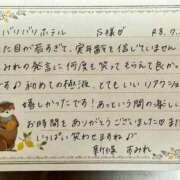 バリバリホテル S様♡ R8.7.
た目が若すぎて、実年齢を信じていません
みれの発言に何度も笑ってもらえて良か
初めての極液、とてもいいリアクショ
嬉しかったです!あっという間の楽し
お時間をありがとうございました
いっぱい笑わせますね♪
新妻 すみれ